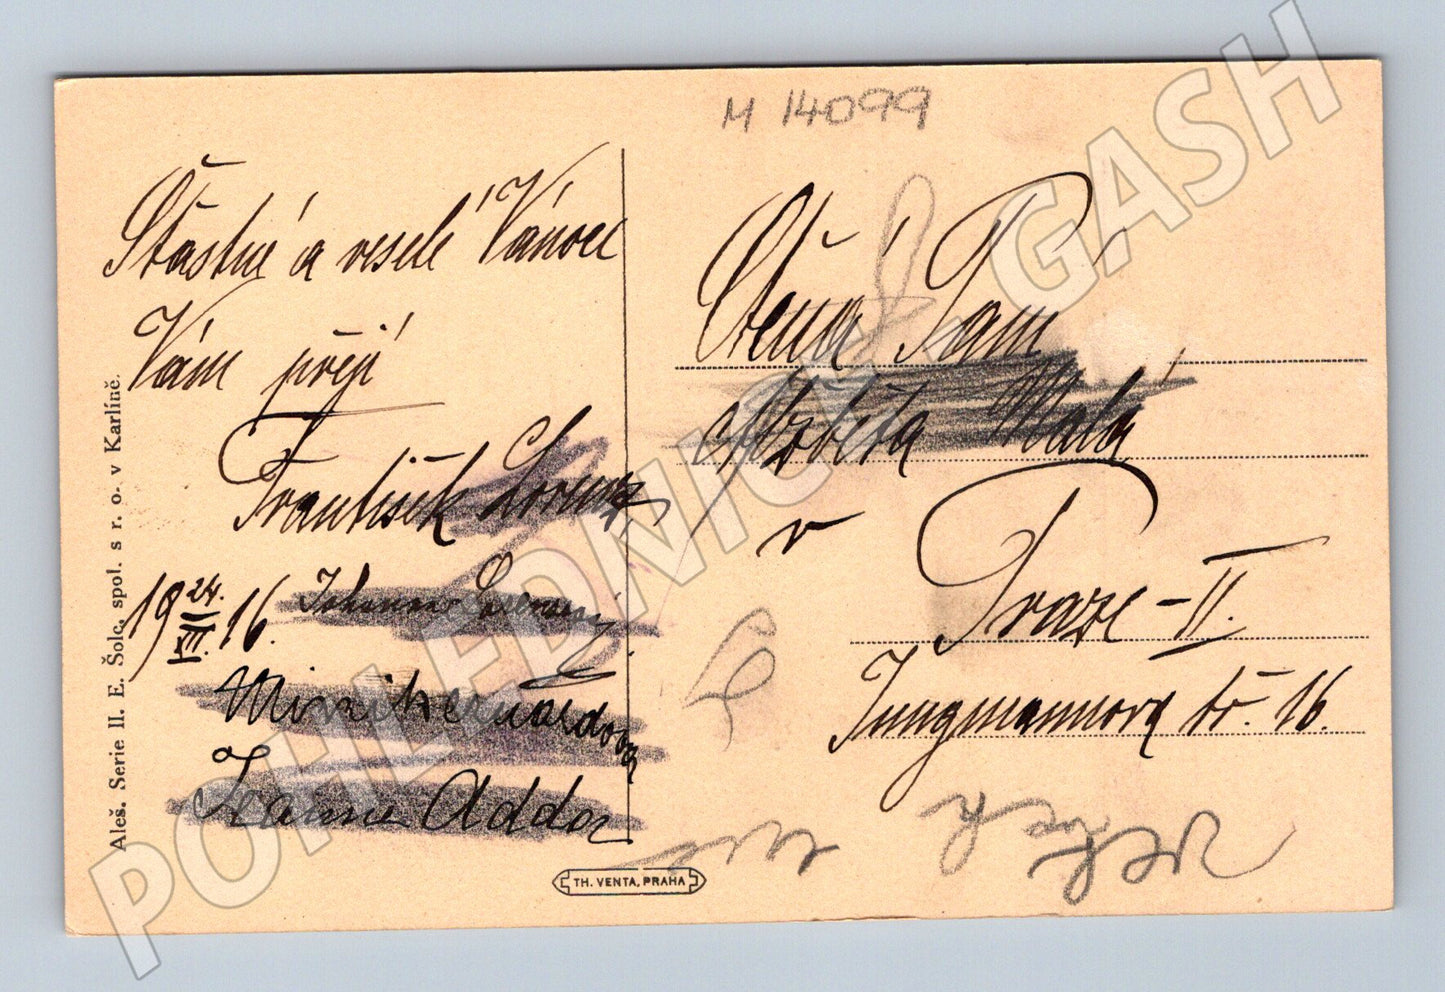 M 14099
Šťastné a veselé Vánoce
Vám přejí
František Lorenz
19 24./XII. 16.
Johanna
Jeanne Addor
Ctěná Paní
Alžběta Malá
v
Praze - II.
Jungmannova tř. 16.
Aleš. Serie II. E. Šolc, spol. s r. o. v Karlíně.
TH. VENTA, PRAHA
POHLEDNICE . GASH